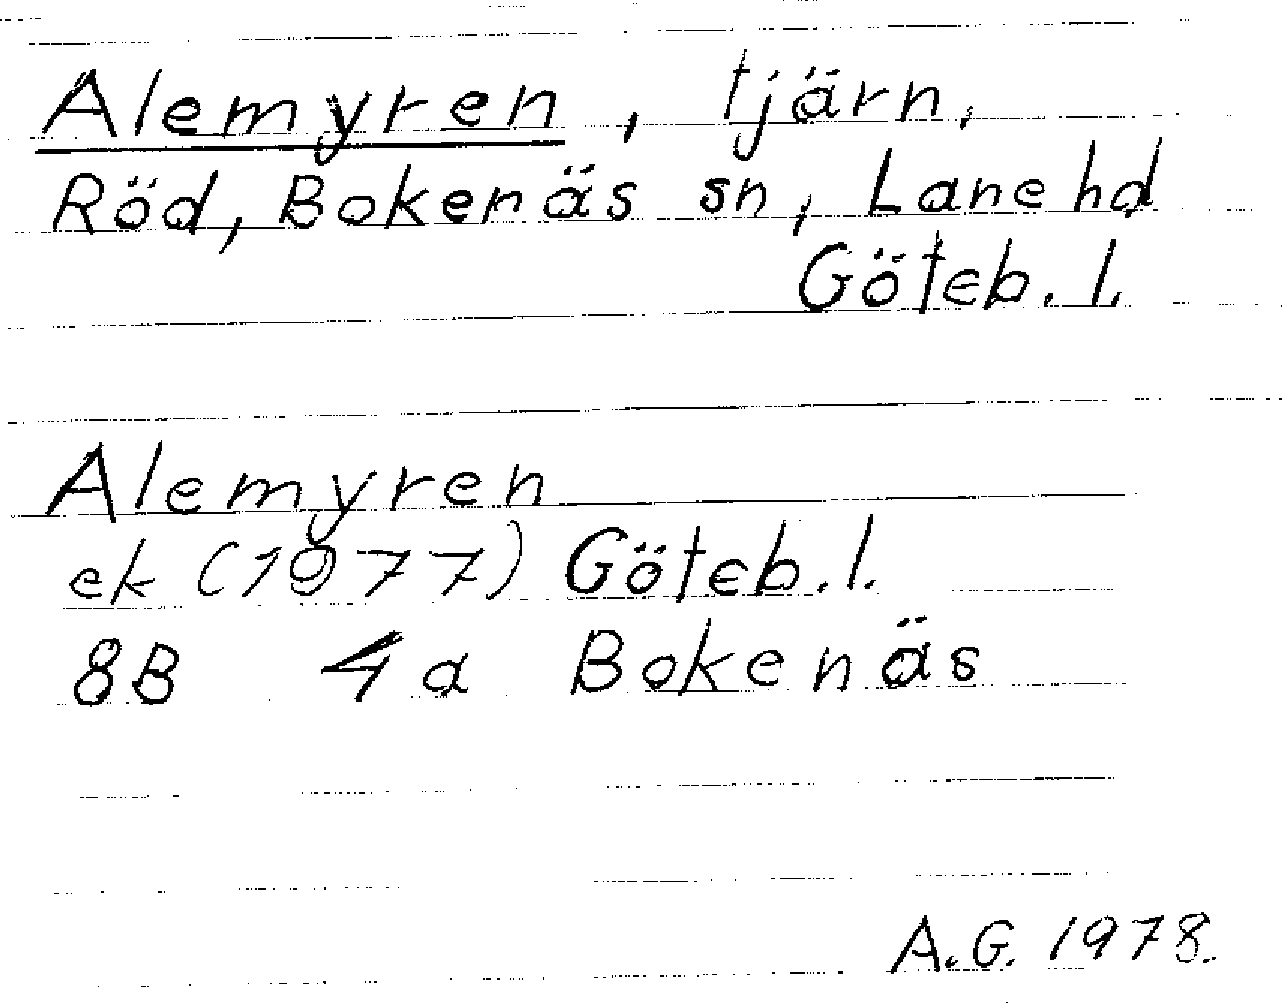 Alemyren, tjärn,
Röd, Bokenäs sn, Lane hd
Göteb. l.
Alemyren
ek (1977) Göteb. l.
8B 4a Bokenäs
A.G. 1978.